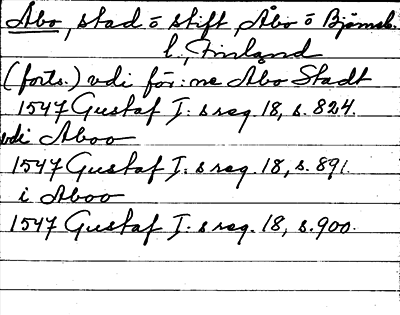 Åbo, stad o stift, Åbo o Björneb.
l., Finland
(forts.) vdi för:ne Abo Stadt
1547 Gustaf I:s reg. 18, s. 824.
vdi Aboo
1547 Gustaf I:s reg. 18, s. 891.
i Aboo
1547 Gustaf I:s reg. 18, s. 900.